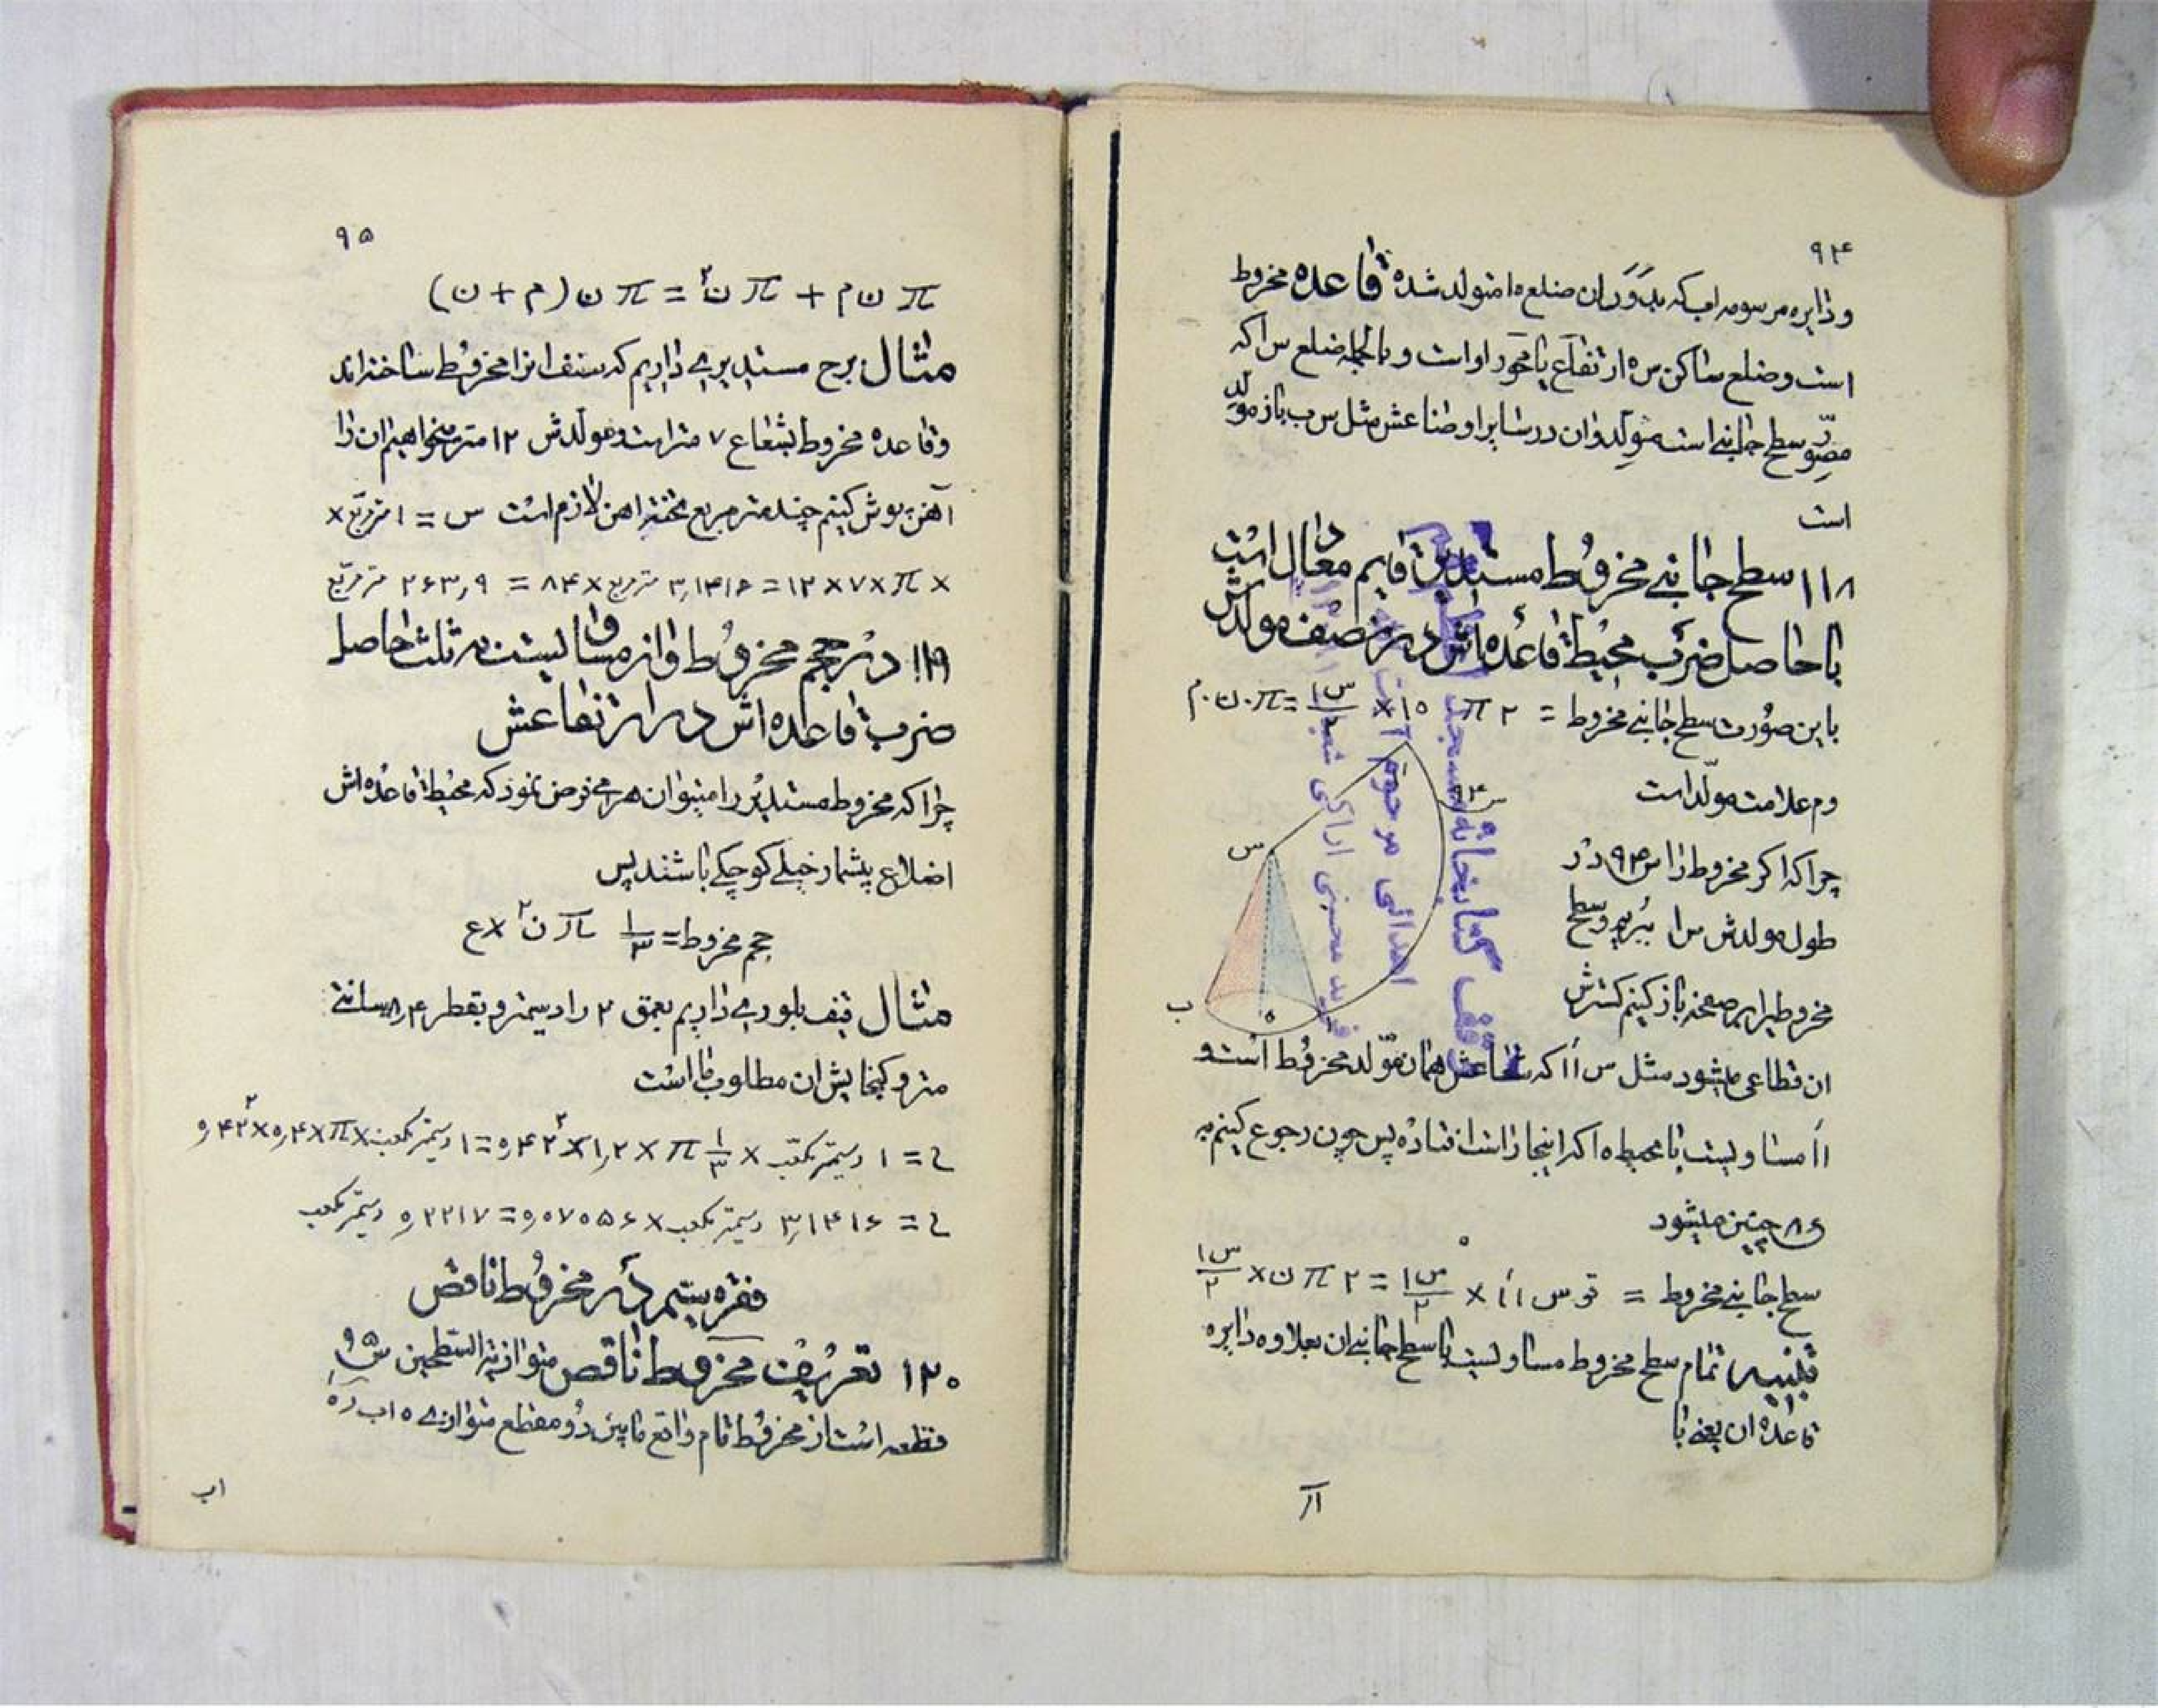 ۹۴
و دایره مرسومه اب که بدوران ضلع ه‌ا متولد شده قاعده مخروط
است و ضلع ساکن س ه ارتفاع یا محور او است و بالجمله ضلع س ا که
مصور سطح جانبی است مولد و ان در سایر اوضاعش مثل س ب باز مولد
است
۱۱۸ سطح جانبی مخروط مستدیر قایم معادل است
با حاصل ضرب محیط قاعده‌اش در نصف مولدش
باین صورت سطح جانبی مخروط = ۲ π ه‌ا × س‌ا/۲ = π . ن . م
و م علامت مولد است
چرا که اکر مخروط را س ۹۴ در
طول مولدش س ا ببریم و سطح
مخروطیرا بر صفحه باز کنیم کسترش
س
ب
ه
ان قطاعی میشود مثل س ا اَ که شعاعش همان مولد مخروط است و
ا اَ مساویست با محیط ه ا که اینجا راست افتاده پس چون رجوع کنیم به
۸۶ چنین میشود
سطح جانبی مخروط = قوس ا اَ × س‌ا/۲ = ۲ π ن × س‌ا/۲
تنبیه تمام سطح مخروط مساویست با سطح جانبی ان بعلاوه دایره
قاعده ان یعنی با
π
۹۵
π ن م + π ن۲ = π ن (م + ن)
مثال برج مستدیری داریم که سقف انرا مخروط ساخته‌اند
و قاعده مخروط بشعاع ۷ متر است و مولدش ۱۲ متر میخواهیم ان را
آهن پوش کنیم چند متر مربع تخته اهن لازم است س = ۱ متر مربع ×
× π × ۷ × ۱۲ = ۳,۱۴۱۶ متر مربع × ۸۴ = ۲۶۳,۹ متر مربع
۱۱۹ در حجم مخروط و ان مساویست به ثلث حاصل
ضرب قاعده‌اش در ارتفاعش
چرا که مخروط مستدیر را میتوان هرمی فرض نمود که محیط قاعده‌اش
اضلاع بیشمار خیلی کوچکی باشند پس
حجم مخروط = ۱/۳ π ن۲ × ع
مثال قیف بلوری داریم بعمق ۲ را دسیمتر و بقطر ۴ر۸ سانتی
متر و کنجایش ان مطلوب ما است
ح = ۱ دسیمتر مکعب × ۱/۳ π × ۱,۲ × ۰,۴۲۲ = ۱ دسیمتر مکعب × π × ۰,۴ × ۰,۴۲۲
ح = ۳,۱۴۱۶ دسیمتر مکعب × ۰,۰۷۰۵۶ = ۰,۲۲۱۷ دسیمتر مکعب
فقره بیستم در مخروط ناقص
۱۲۰ تعریف مخروط ناقص متوازیة السطحین ش ۹۵
قطعه است از مخروط تام واقع مابین دو مقطع متوازی ه اب و
اب